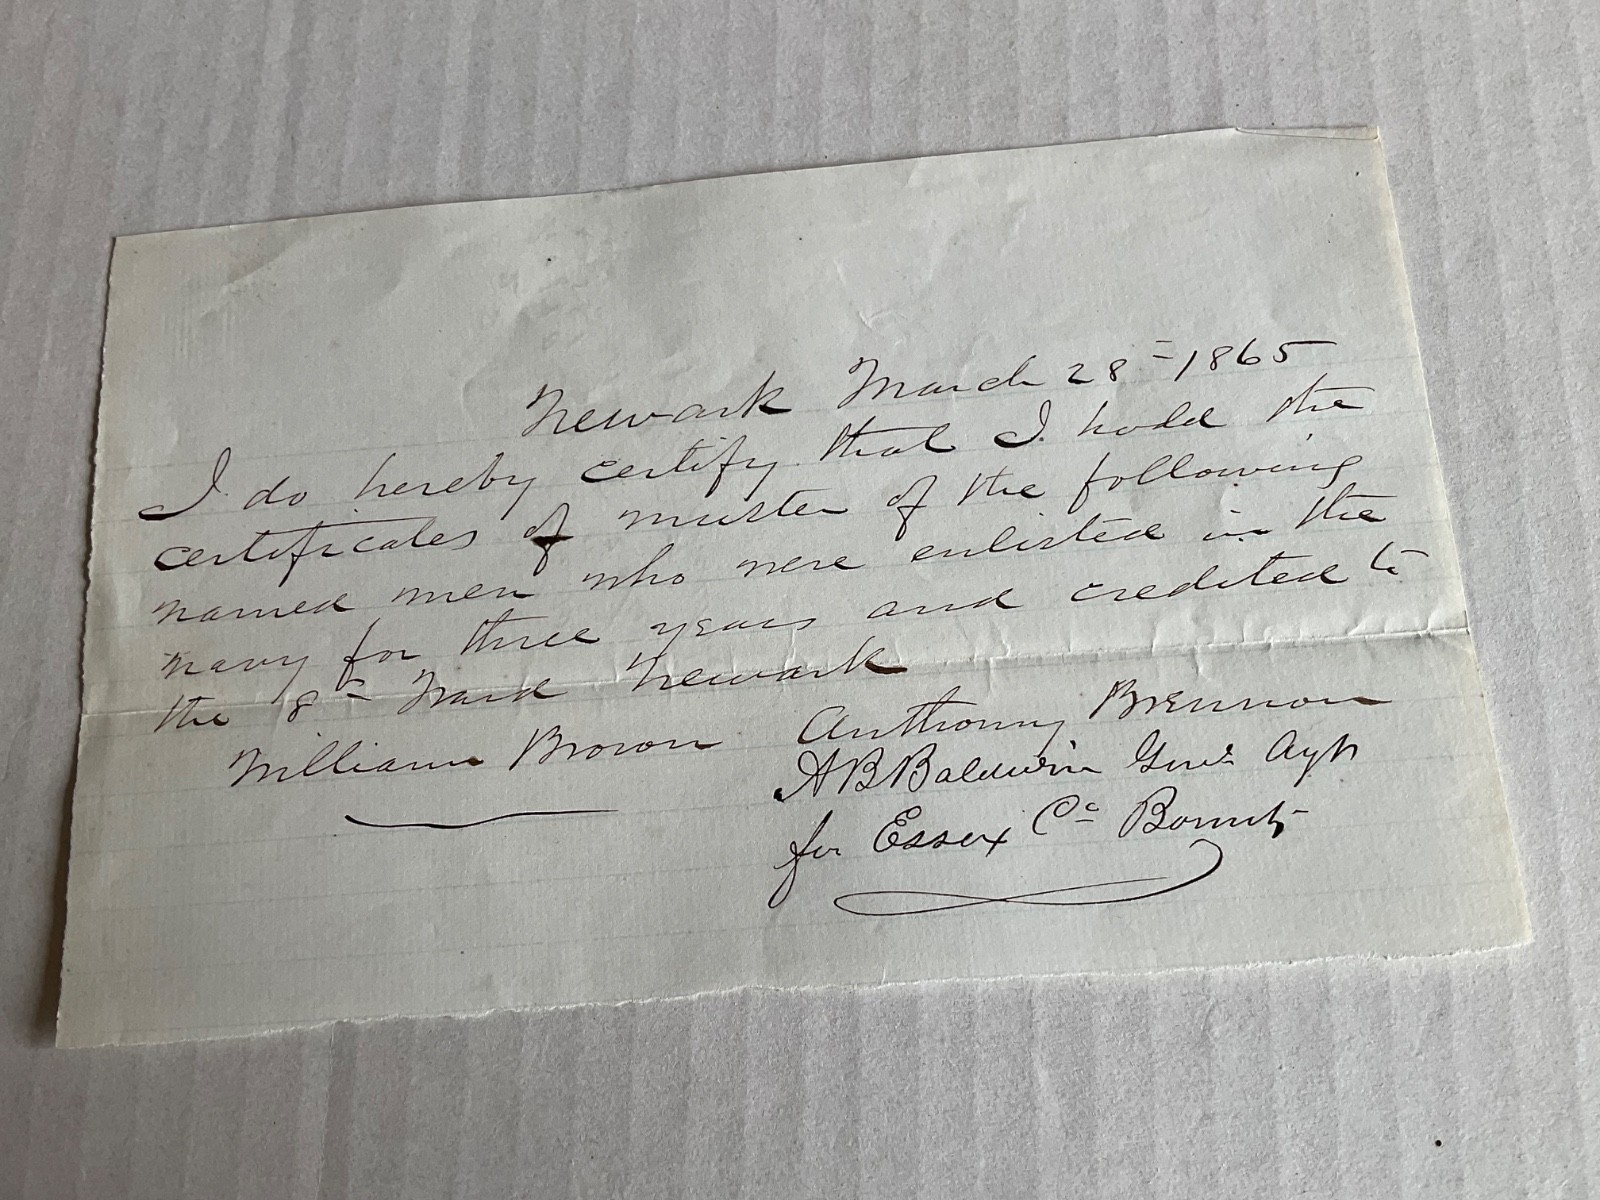 Newark March 28 = 1865
I do hereby certify that I hold the
certificates of muster of the following
named men who were enlisted in the
navy for three years and credited to
the 8th Ward Newark
William Brown Anthony Brennon
A B Baldwin Agt
for Essex Co